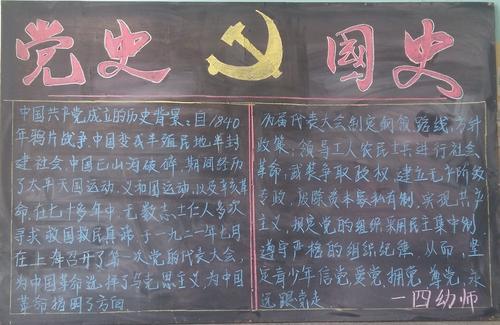 党史 国史
中国共产党成立的历史背景：自1840
年鸦片战争,中国变成半殖民地半封
建社会,中国已山河破碎,期间经历
了太平天国运动,义和团运动,以及辛亥革
命,在七十多年中,无数志士仁人多次
寻求救国救民真谛,于一九二一年七月
在上海召开了第一次党的代表大会,
为中国革命选择了马克思主义,为中国
革命指明了方向.
历届代表大会制定纲领路线、方针
政策,领导工人农民士兵进行社会
革命,武装争取政权,建立无产阶级
专政,废除资本家私有制,实现共产
主义,规定党的组织采用民主集中制
遵守严格的组织纪律,从而,坚
定青少年信党、爱党、拥党、尊党、永
远跟党走
一四幼师